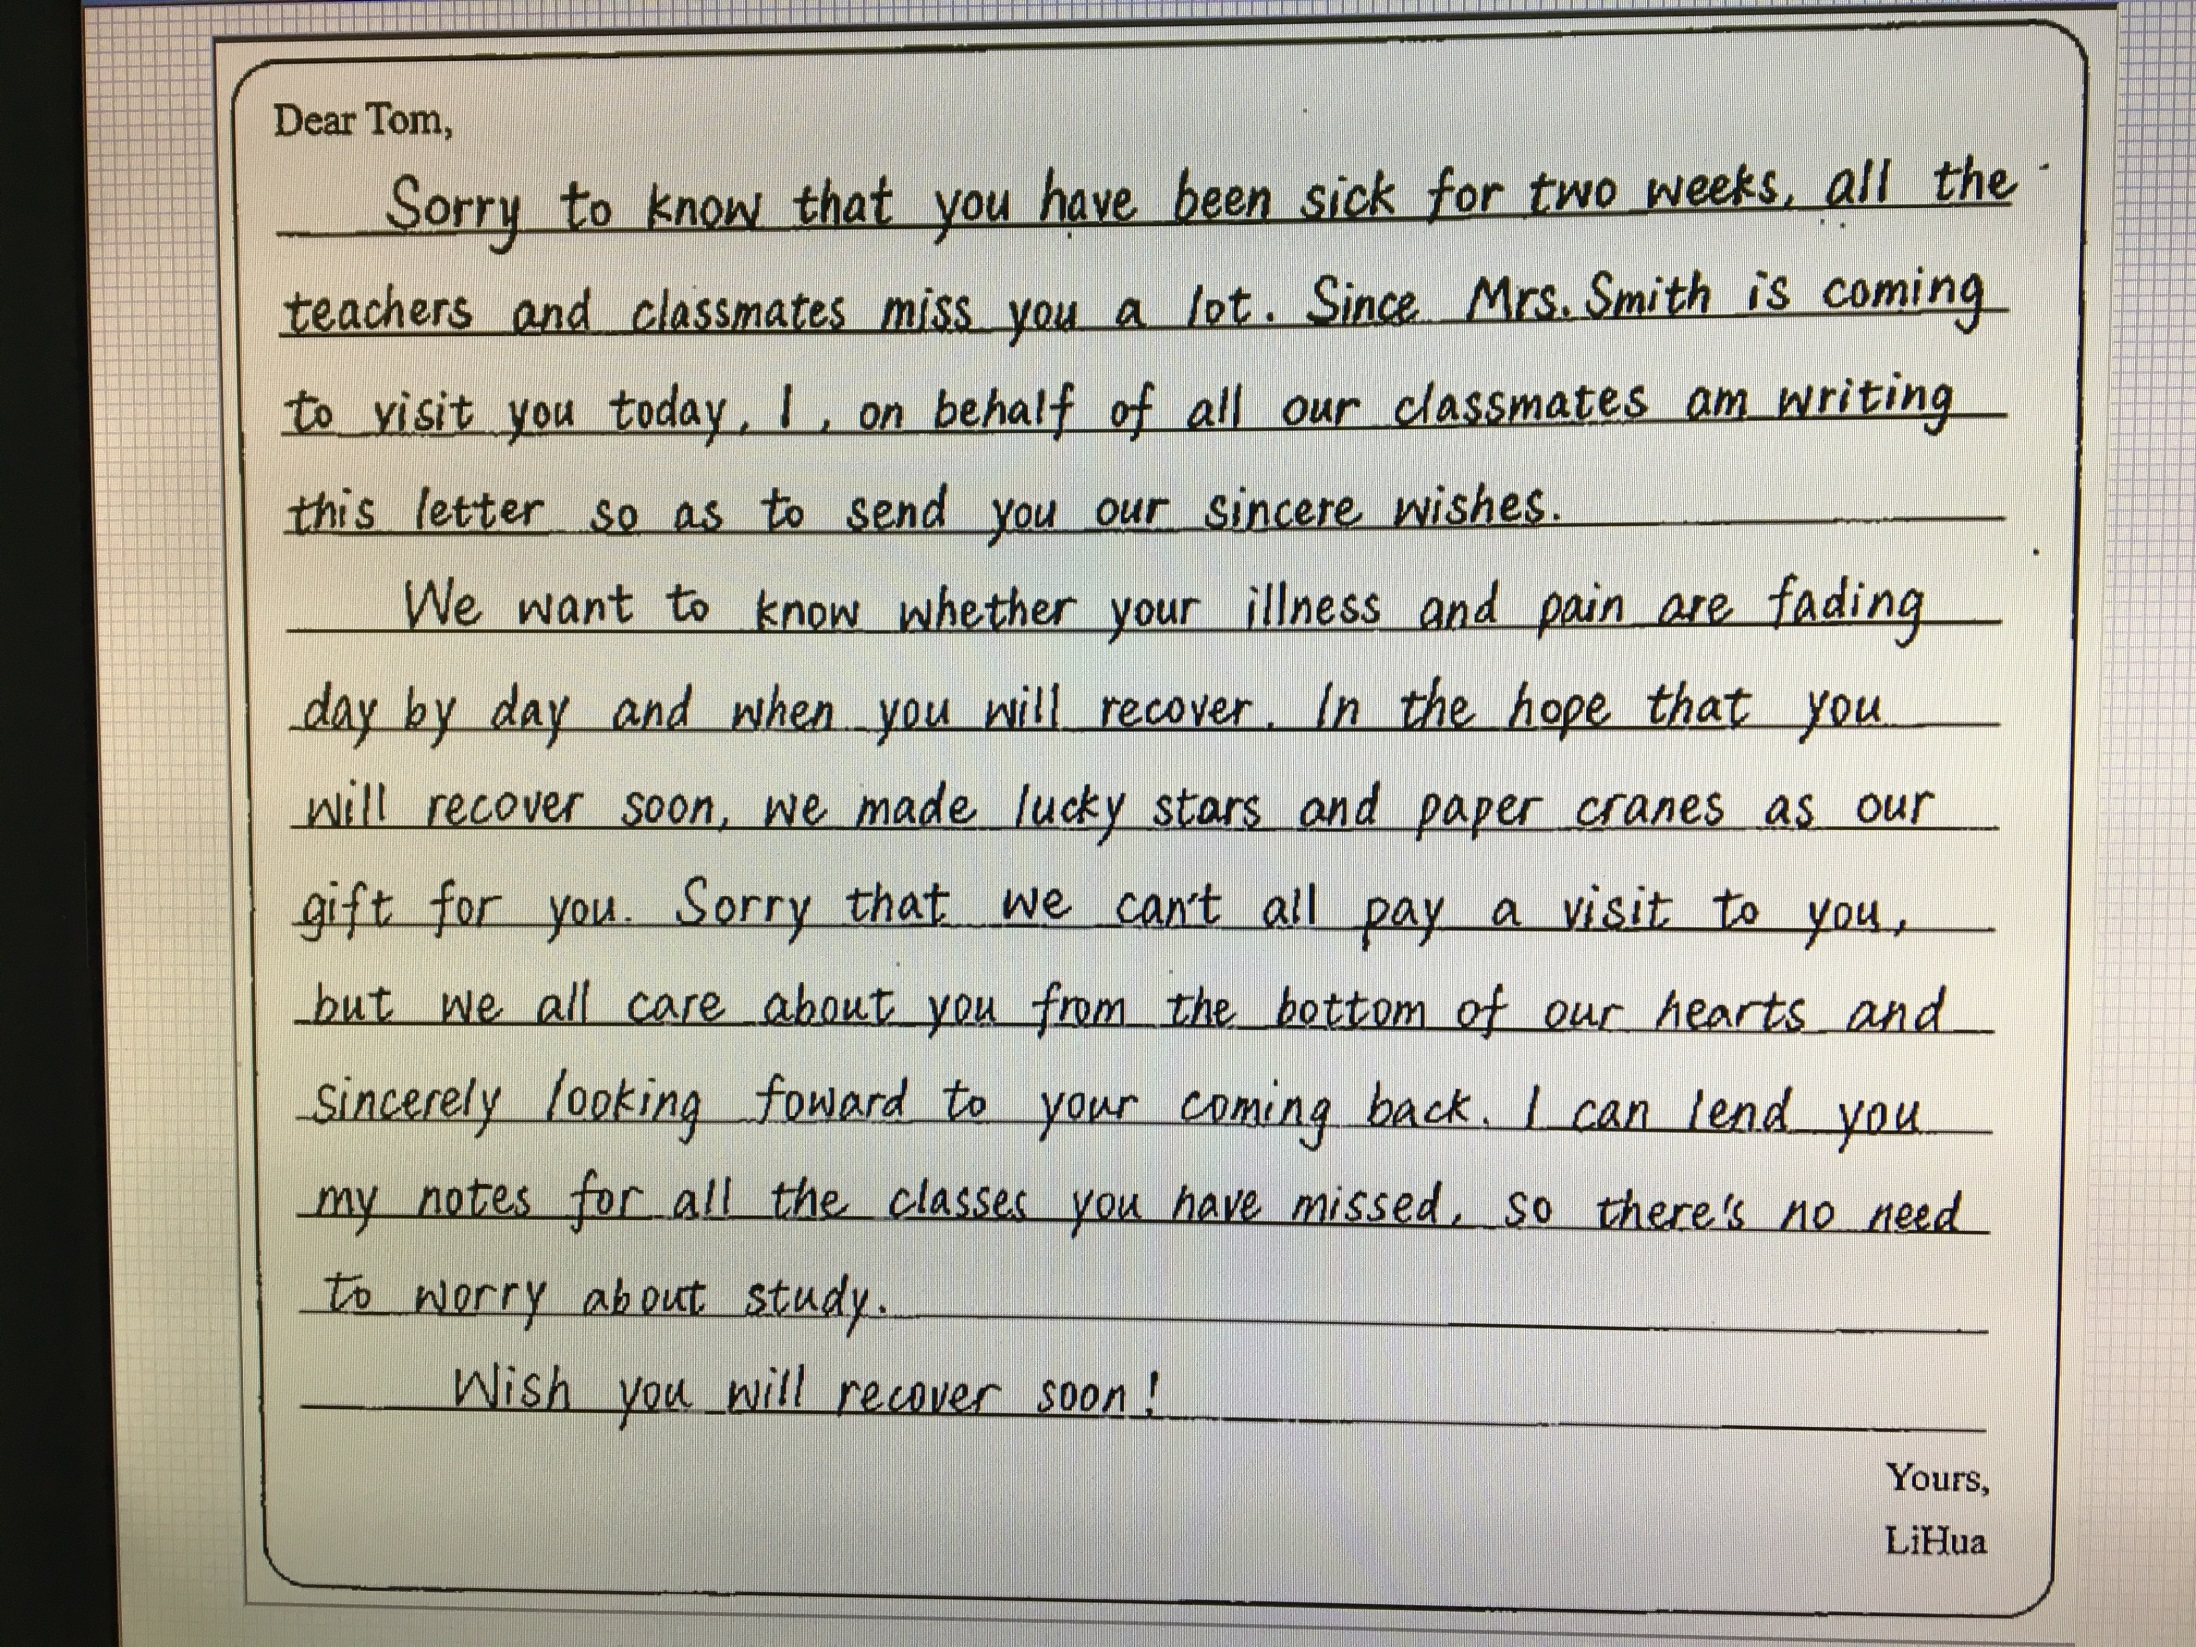 Dear Tom,
Sorry to know that you have been sick for two weeks, all the
teachers and classmates miss you a lot. Since Mrs. Smith is coming
to visit you today, I, on behalf of all our classmates am writing
this letter so as to send you our sincere wishes.
We want to know whether your illness and pain are fading
day by day and when you will recover. In the hope that you
will recover soon, we made lucky stars and paper cranes as our
gift for you. Sorry that we can't all pay a visit to you,
but we all care about you from the bottom of our hearts and
sincerely looking foward to your coming back. I can lend you
my notes for all the classes you have missed, so there's no need
to worry about study.
Wish you will recover soon!
Yours,
LiHua